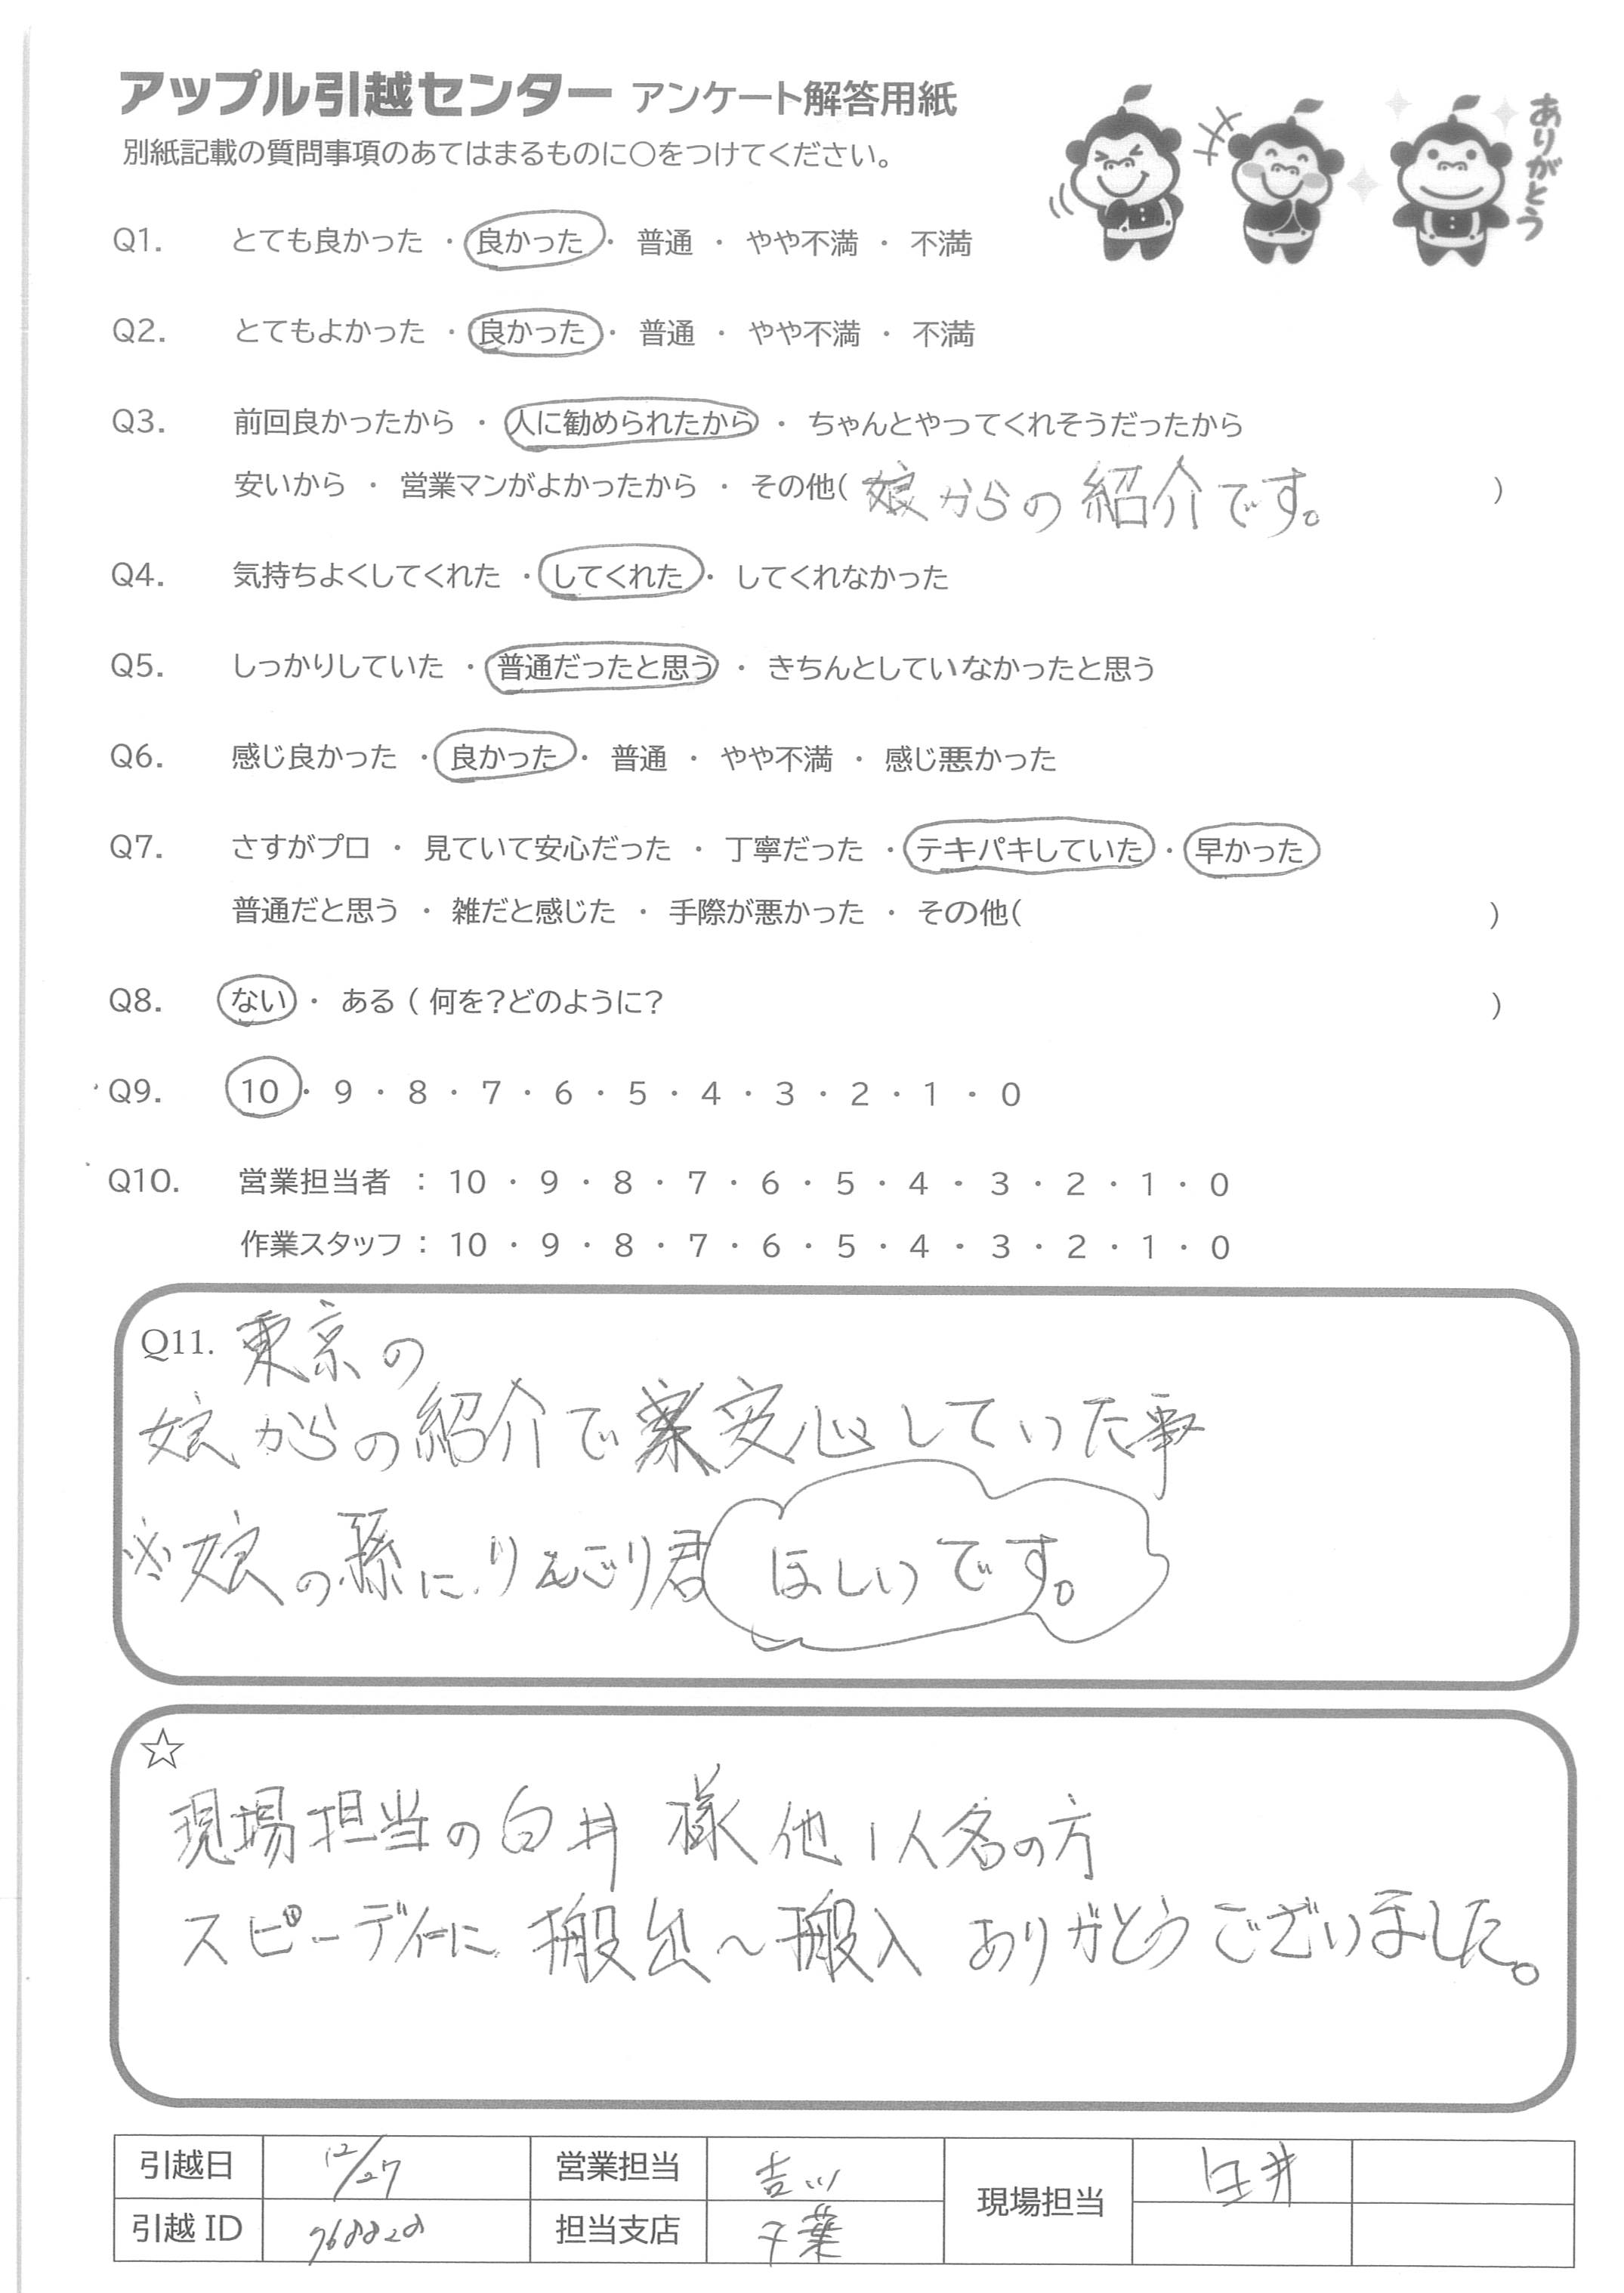 アップル引越センター アンケート解答用紙
別紙記載の質問事項のあてはまるものに○をつけてください。
ありがとう
Q1. とても良かった ・ 良かった ・ 普通 ・ やや不満 ・ 不満
Q2. とてもよかった ・ 良かった ・ 普通 ・ やや不満 ・ 不満
Q3. 前回良かったから ・ 人に勧められたから ・ ちゃんとやってくれそうだったから
安いから ・ 営業マンがよかったから ・ その他( 娘からの紹介です。 )
Q4. 気持ちよくしてくれた ・ してくれた ・ してくれなかった
Q5. しっかりしていた ・ 普通だったと思う ・ きちんとしていなかったと思う
Q6. 感じ良かった ・ 良かった ・ 普通 ・ やや不満 ・ 感じ悪かった
Q7. さすがプロ ・ 見ていて安心だった ・ 丁寧だった ・ テキパキしていた ・ 早かった
普通だと思う ・ 雑だと感じた ・ 手際が悪かった ・ その他( )
Q8. ない ・ ある ( 何を?どのように? )
Q9. 10 ・ 9 ・ 8 ・ 7 ・ 6 ・ 5 ・ 4 ・ 3 ・ 2 ・ 1 ・ 0
Q10. 営業担当者 : 10 ・ 9 ・ 8 ・ 7 ・ 6 ・ 5 ・ 4 ・ 3 ・ 2 ・ 1 ・ 0
作業スタッフ : 10 ・ 9 ・ 8 ・ 7 ・ 6 ・ 5 ・ 4 ・ 3 ・ 2 ・ 1 ・ 0
Q11. 東京の
娘からの紹介で安心していた事
※娘の孫に、りんごり君 ほしいです。
☆
現場担当の白井 様 他 1人名の方
スピーディーに 搬出〜搬入 ありがとうございました。
引越日 12/27 営業担当 吉川 現場担当 臼井
引越 ID 968828 担当支店 千葉